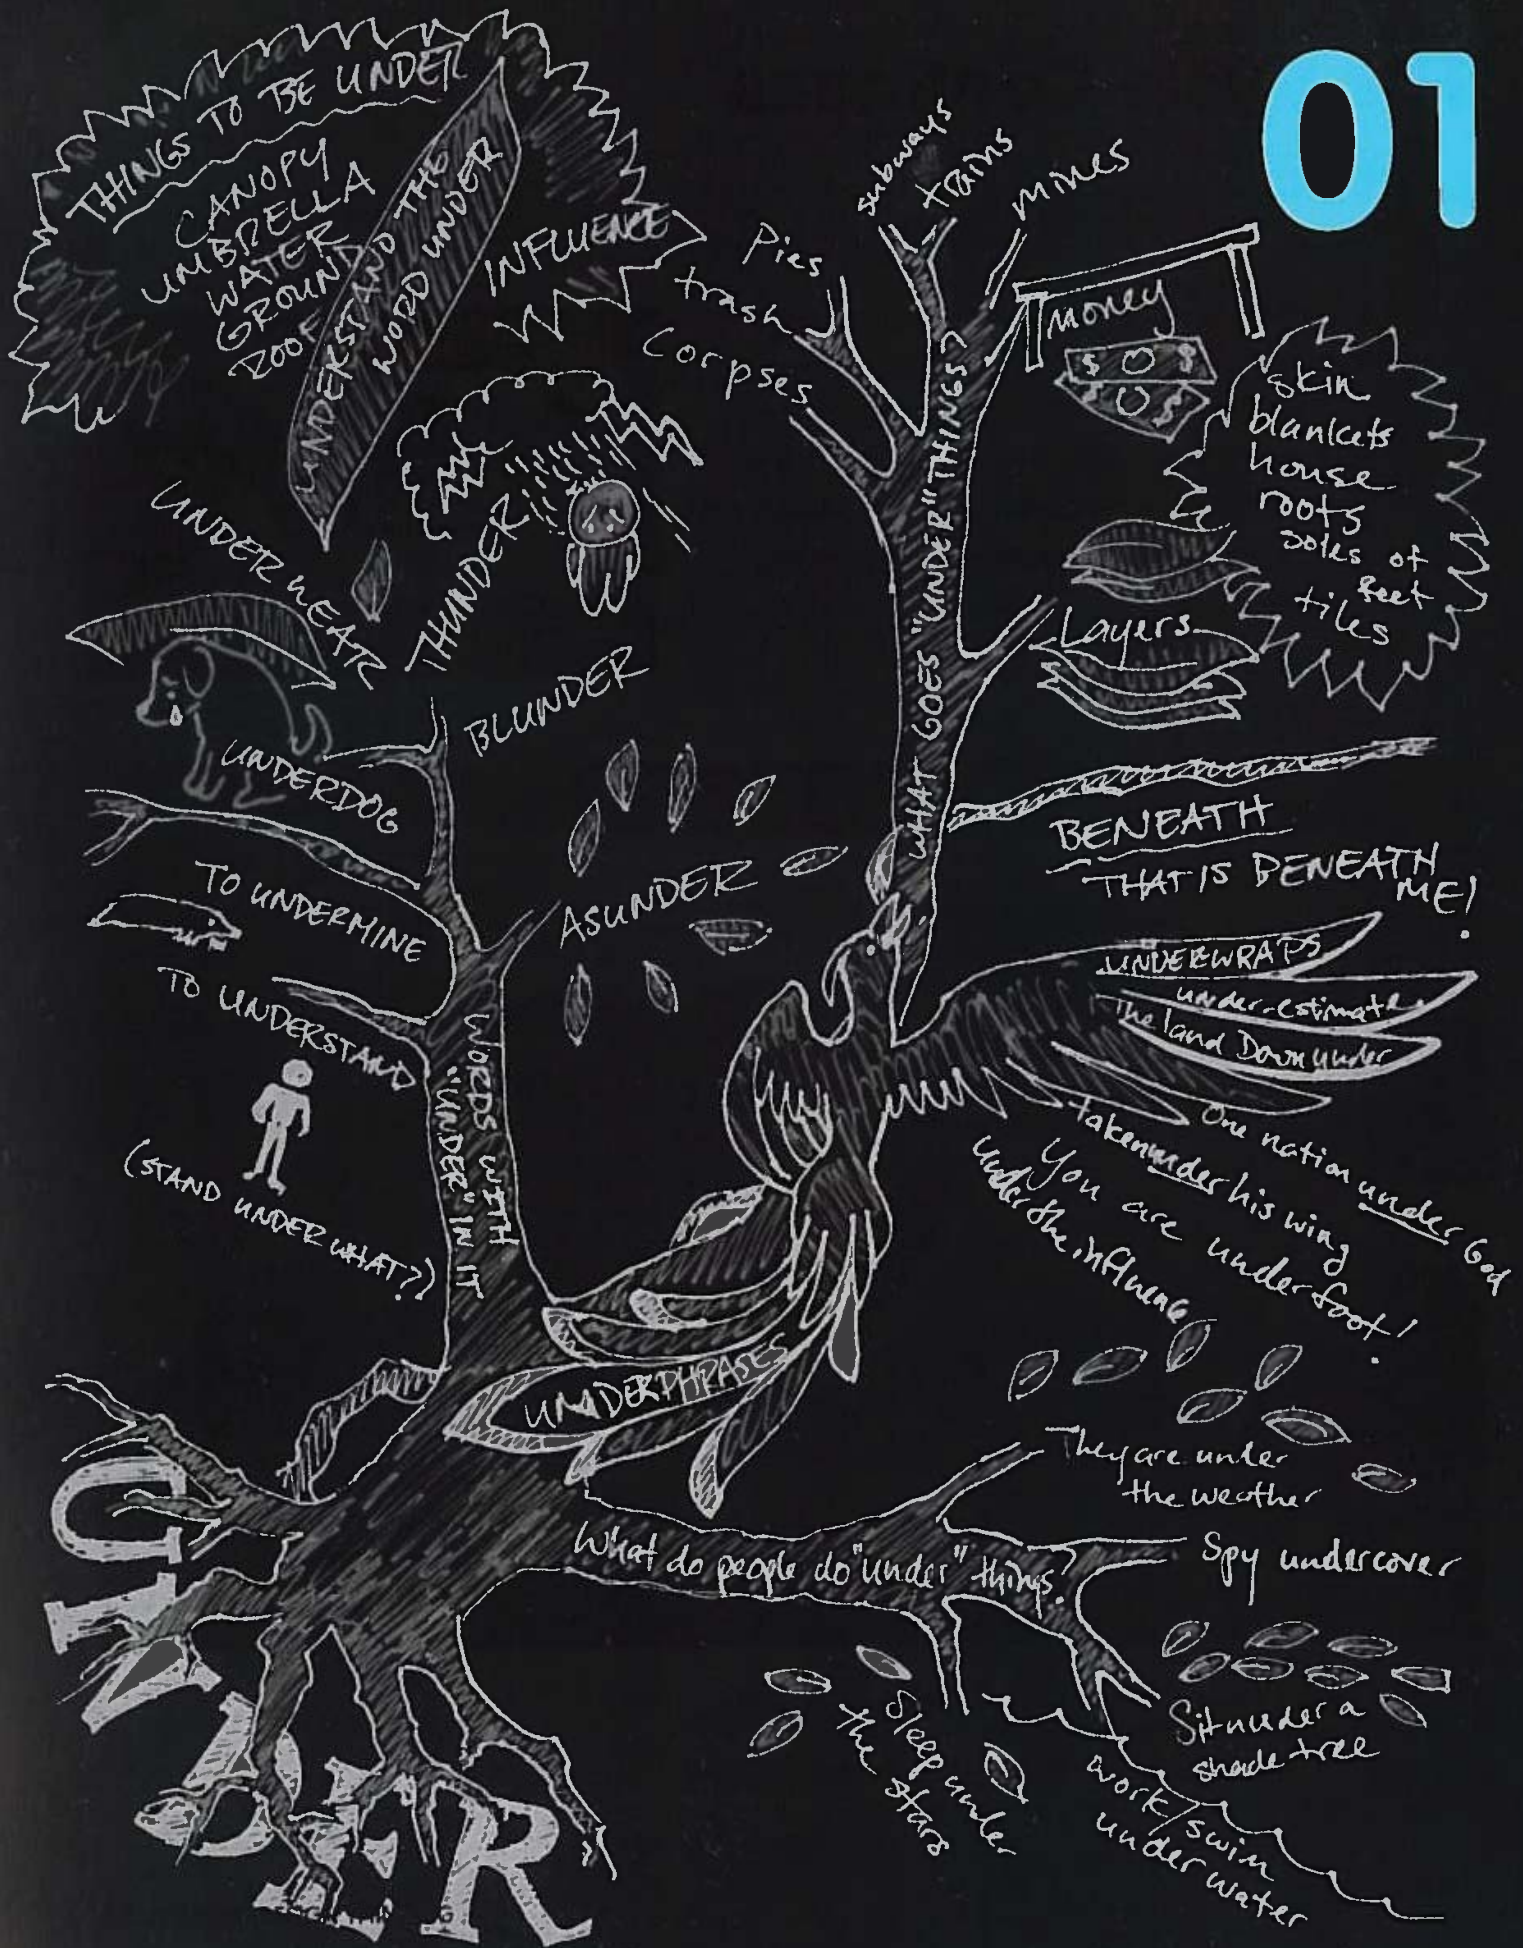 01
THINGS TO BE UNDER
CANOPY
UMBRELLA
WATER
GROUND
ROOF
UNDERSTAND THE
WORD UNDER
INFLUENCE
Pies
trash
Corpses
subways
trains
mines
money
$ O $
O $
WHAT GOES "UNDER" THINGS?
skin
blankets
house
roots
soles of
feet
tiles
Layers
UNDERWEAR
THUNDER
BLUNDER
UNDERDOG
TO UNDERMINE
ASUNDER
TO UNDERSTAND
(STAND UNDER WHAT?)
WORDS WITH
"UNDER" IN IT
BENEATH
THAT IS BENEATH
ME!
UNDERWRAPS
under-estimate
The land Down under
One nation under God
taken under his wing
You are under foot!
under the influence
UNDERPHRASES
They are under
the weather
What do people do "under" things?
Spy undercover
Sit under a
shade tree
Sleep under
the stars
work/swim
under water
UNDER